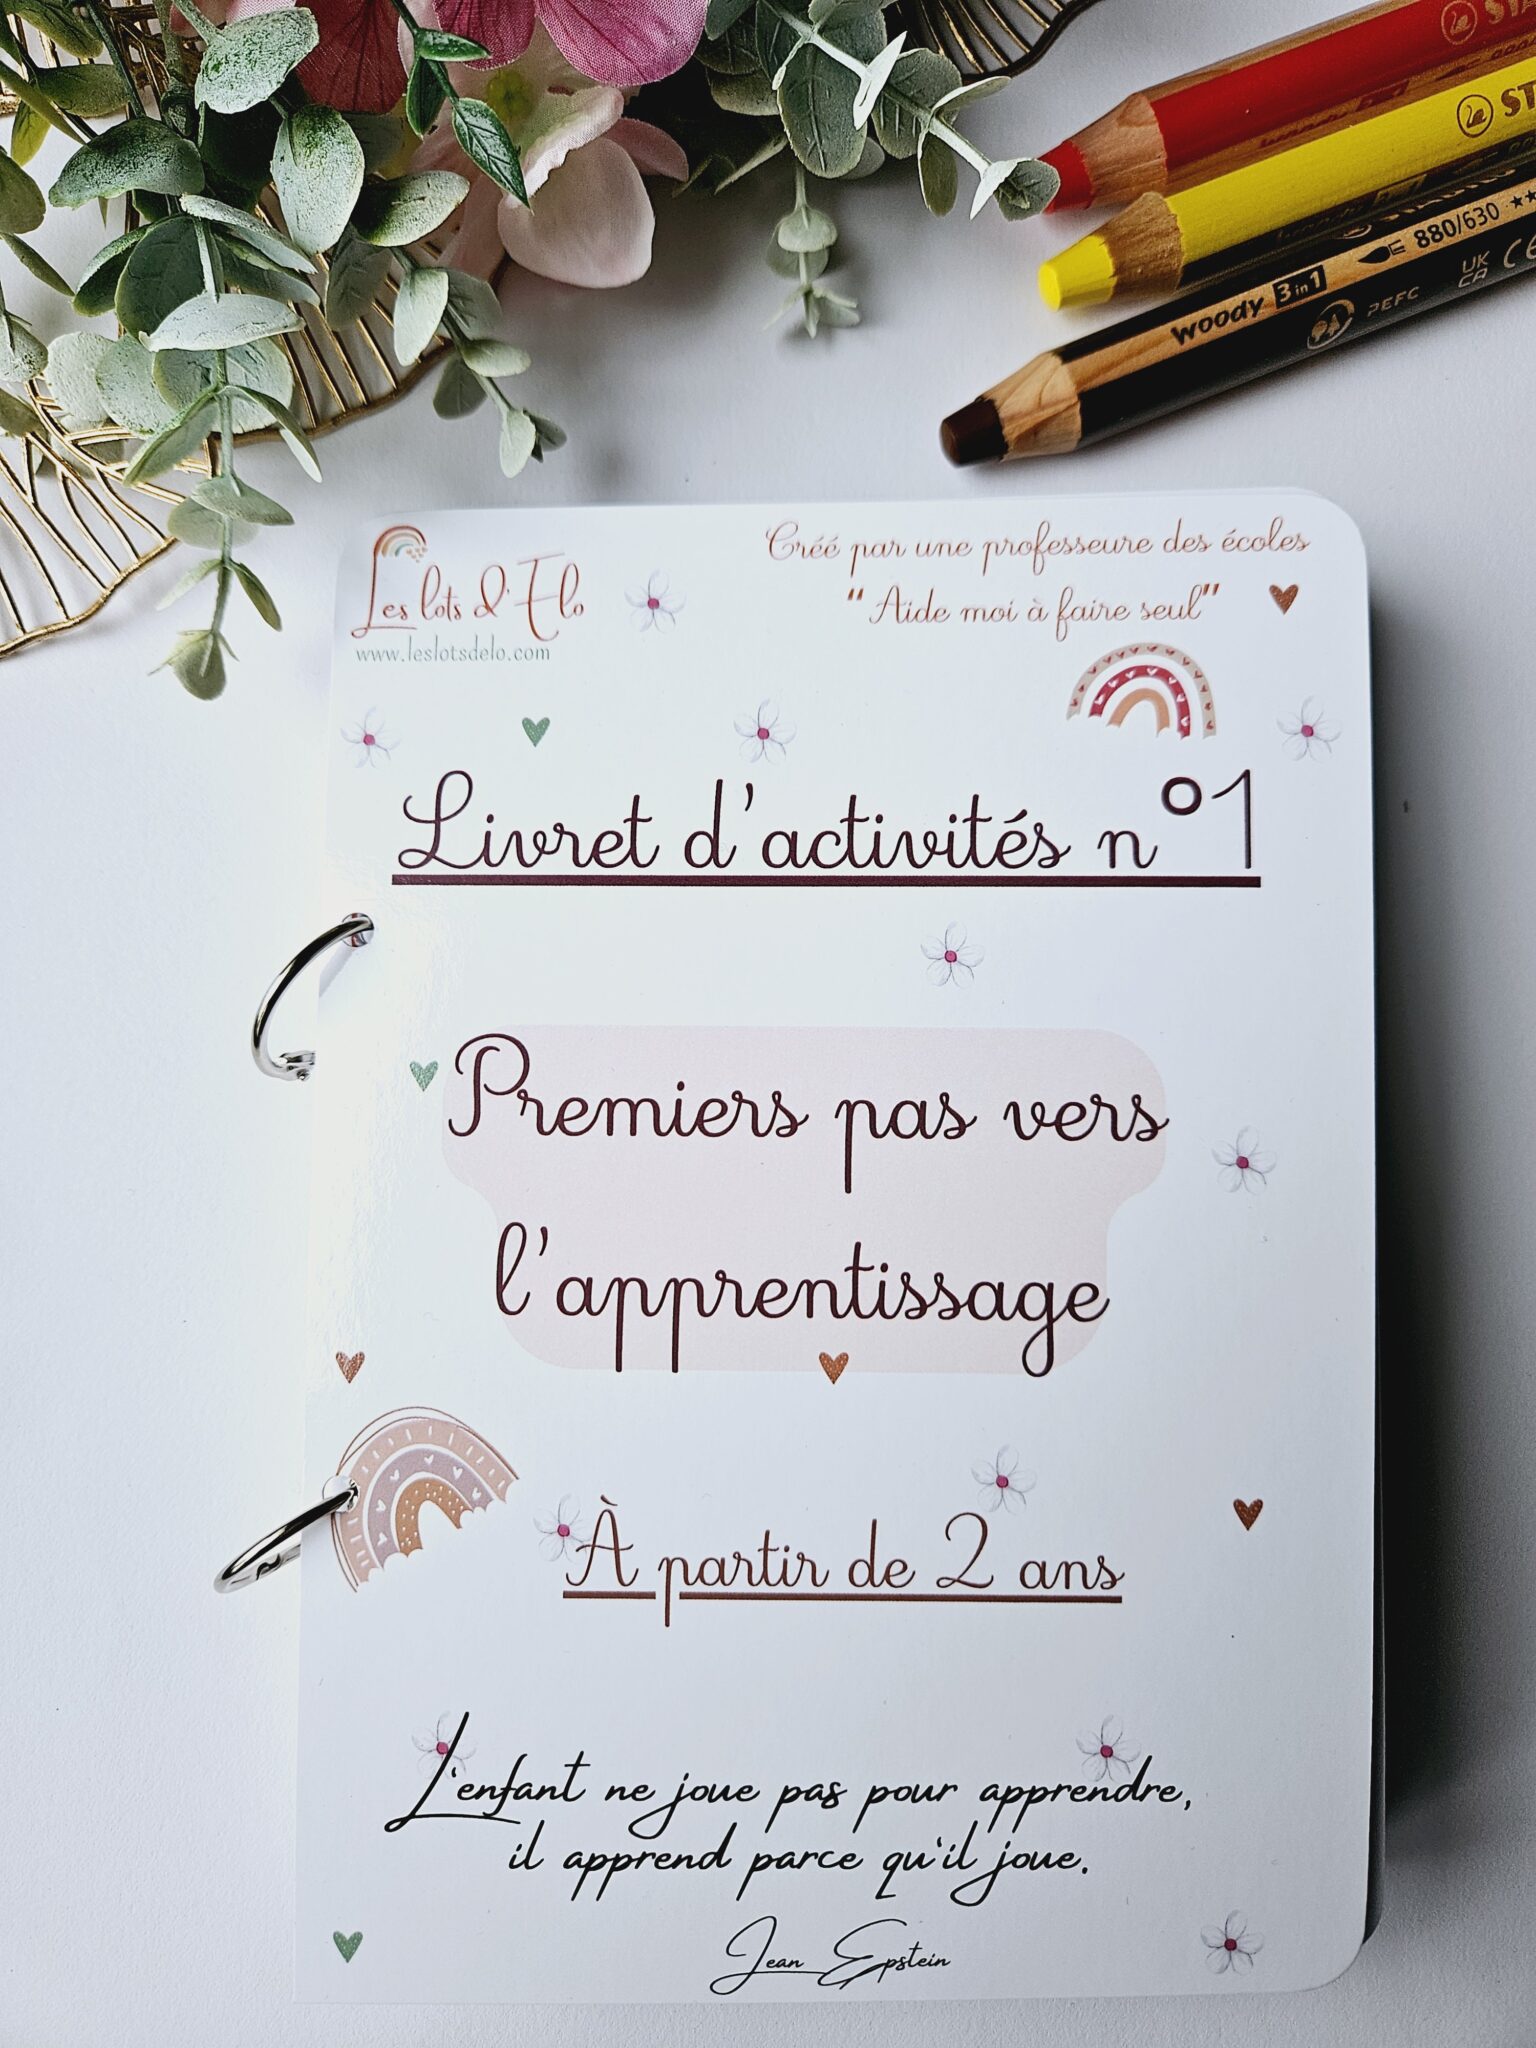 STA
ST
woody 3 in 1 880/630
PEFC UK CA CE
Les lots d'Elo
www.leslotsdelo.com
Créé par une professeure des écoles
“Aide moi à faire seul”
Livret d'activités n°1
Premiers pas vers
l'apprentissage
À partir de 2 ans
L'enfant ne joue pas pour apprendre,
il apprend parce qu'il joue.
Jean Epstein